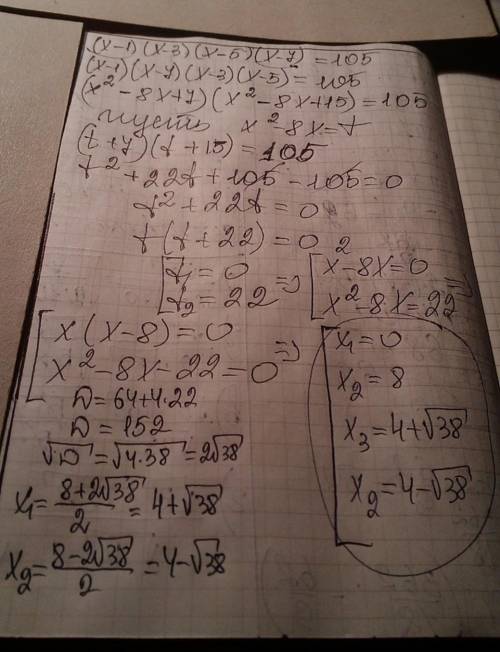 (x-1)(x-3)(x-5)(x-7)=105
(x-1)(x-7)(x-3)(x-5)=105
(x²-8x+7)(x²-8x+15)=105
пусть x²-8x=t
(t+7)(t+15)=105
t²+22t+105-105=0
t²+22t=0
t(t+22)=0
[t₁=0 => [x²-8x=0 =>
t₂=22 x²-8x=22
[x(x-8)=0 =>
x²-8x-22=0
D=64+4·22
D=152
√D=√4·38=2√38
x₁=8+2√38/2=4+√38
x₂=8-2√38/2=4-√38
[x₁=0
x₂=8
x₃=4+√38
x₂=4-√38